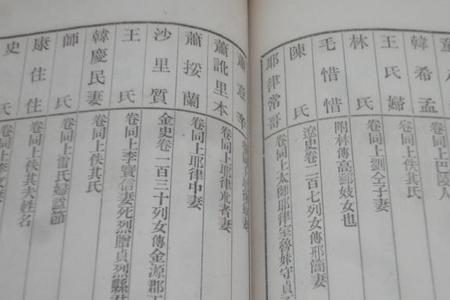 韓希孟 卷同上巴陵人
王氏婦 卷同上劉仝子妻
林氏 卷同上佚其氏
毛惜惜 附林傳高郵妓女也
陳氏 遼史卷一百七列女傳邢簡妻
耶律常哥 卷同上太師耶律室魯妹守貞
蕭訛里本
蕭挼蘭 卷同上耶律中妻
沙里質 金史卷一百三十列女傳金源郡王
王氏 卷同上李寶信妻死烈贈貞烈縣君
韓慶民妻 卷同上佚其氏
師氏 卷同上雷氏
康住住 卷同上佚其夫姓名
史氏